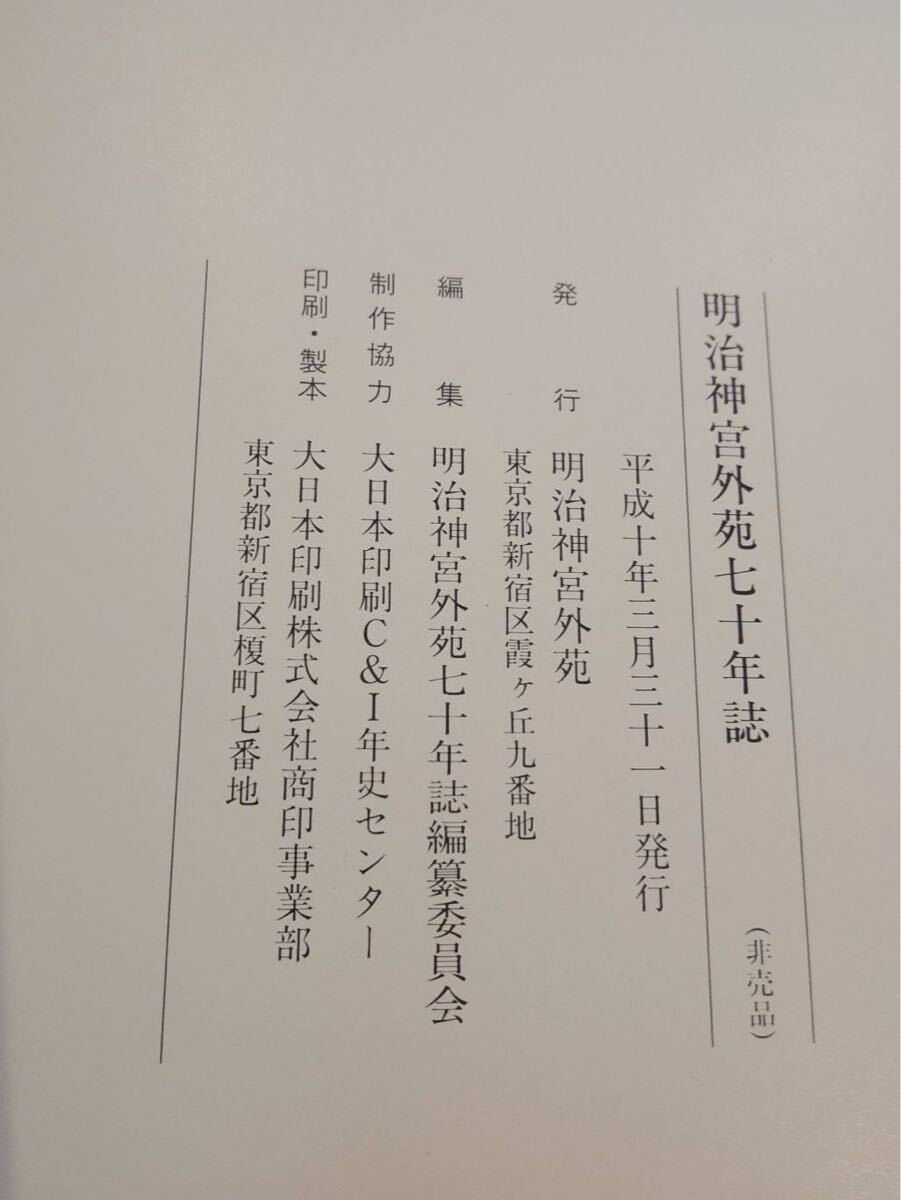 明治神宮外苑七十年誌 (非売品)
平成十年三月三十一日発行
発行 明治神宮外苑
東京都新宿区霞ヶ丘九番地
編集 明治神宮外苑七十年誌編纂委員会
制作協力 大日本印刷C&I年史センター
印刷・製本 大日本印刷株式会社商印事業部
東京都新宿区榎町七番地